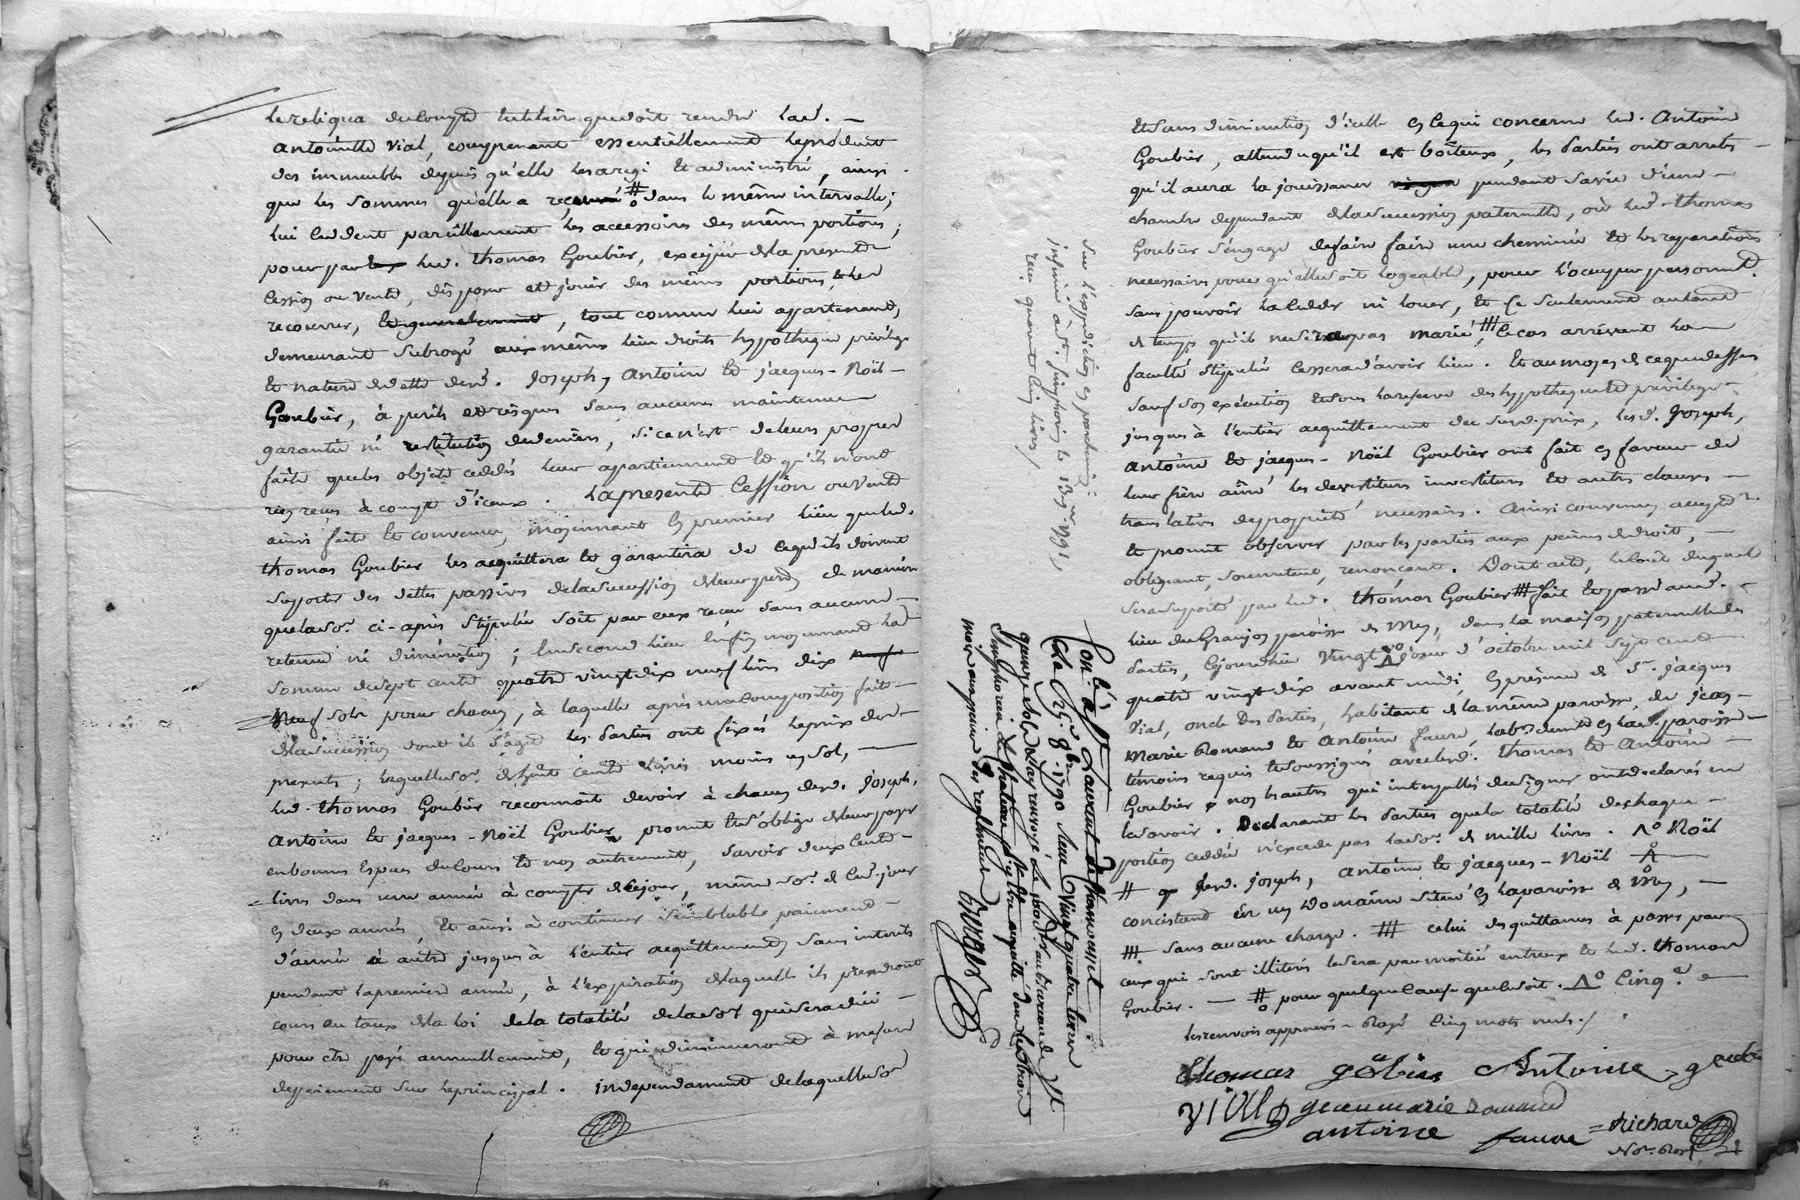 le reliqua du compte tutelaire que doit rendre lad. —
antoinette vial, comprenant essentiellement le produit
des immeubles depuis qu'elle les a regi et administré, ainsi
que les sommes qu'elle a dans le même intervalle;
lui cedent pareillement les accessoires des mêmes portions;
pour par led. thomas Goubier, en vigueur de la presente
cession ou vente, disposer et jouir des mêmes portions, les
recouvrer, tout comme lui appartenant,
demeurant subrogé aux mêmes lieu droits hypotheque privilege
et nature de dette desd. joseph, Antoine et jacques-Noël-
Goubier, à perils et risques sans aucune maintenue
garantie ni restitution de deniers, si ce n'est de leurs propres
faits que les objets cedés leur appartiennent et qu'ils n'ont
rien recus à compte d'iceux. La presente Cession ou vente
ainsi faite et convenue, moyennant en premier lieu que led.
thomas Goubier les acquittera et garantira de ce qu'ils doivent
supporter des dettes passives de la succession de leur pere, de maniere
que la so.e ci-après stipulée soit par eux recue sans aucune —
retenue ni diminution; En second lieu enfin moyennant la
somme de sept cents quatre vingt dix neuf livres dix
Neuf sols pour chacun, à laquelle après une composition faite —
de la succession dont il s'agit les parties ont fixés le prix des
presents; laquelle so.e de huit cents livres moins un sol, —
led. thomas Goubier reconnoit devoir à chacun desd. joseph,
Antoine et jacques-Noël Goubier promet et s'oblige de leur payer
en bonnes Especes du cours et non autrement, Savoir deux Cents —
livres dans une année à compter de ce jour, même so.e de lad. jour
en deux années, Et ainsi à continuer semblable paiement —
d'année à autre jusques à l'entier acquittement, sans interets
pendant la premiere année, à l'expiration de laquelle ils prendront
cours au taux de la loi de la totalité de la so.e qui sera dûe —
pour etre payé annuellement, et qui diminueront à mesure
de paiement sur le principal. independament de laquelle so.e
Et sans diminution d'icelle en ce qui concerne led. Antoine
Goubier, attendu qu'il est boiteux, les parties ont arretés —
qu'il aura la jouissance pendant sa vie d'une —
chambre dependant de la succession paternelle, où led. thomas
Goubier s'engage de faire faire une cheminée et les reparations
necessaires pour qu'elle soit logeable, pour l'occuper personnel.t
sans pouvoir la ceder ni louer, Et ce seulement autant
de temps qu'il ne sera pas marié, # le cas arrivant la —
faculté stipulée cessera d'avoir lieu. Et au moyen de ce que dessus
sauf son exécution et sous la reserve des hypotheque et privilege —
jusques à l'entier acquittement du susd. prix, lesd. joseph,
Antoine et jacques-Noël Goubier ont fait en faveur de
leur frere ainé les devestitures investitures et autres clauses —
translatives de propriété necessaires. Ainsi convenu accepté
et promit observer par les parties aux peines de droit,
obligeant, soumettant, renonçant. Dont acte, le coût duquel
sera suporté par led. thomas Goubier # fait et passé aud.
lieu de Granjon paroisse de Mey, dans la maison paternelle des
parties, cejourd'hui vingt jour d'octobre mil sept cent
quatre vingt dix avant midi, En présence de s.r jacques
vial, oncle des parties, habitant de la même paroisse, de jean-
Marie Romand et Antoine faure, lab.rs demt en lad. paroisse —
temoins requis et soussignés avec lesd. thomas et Antoine —
Goubier & non les autres qui interpellés de signer ont declarés ne
le savoir. Declarant les parties que la totalité de chaque —
portion cedée n'excede pas la so.e de mille livres. Noël
# desd. joseph, antoine et jacques-Noël
concistant En un Domaine situé en la paroisse de Mey, —
# sans aucune charge. # celui des quittances à passer par
ceux qui sont illitérés le sera par moitié entreux et led. thomas
Goubier. — # pour quelque cause que ce soit. Cinq.e —
les renvois approuvés — Rayé cinq mots nuls./
thomas gobier Antoine
viALL jean marie romand
antoine faure = Richard
Not. Roy.l
Sur l'expedition en parchemin:
insinué à st. simphorien le 13 1791,
recu quarante cinq livres/
Con.lé à St Laurent de chamousset
le 25. 8bre 1790 Recu Vingt quatre livres
quinze sols renvoyé pour au bureau de St
Simphorien